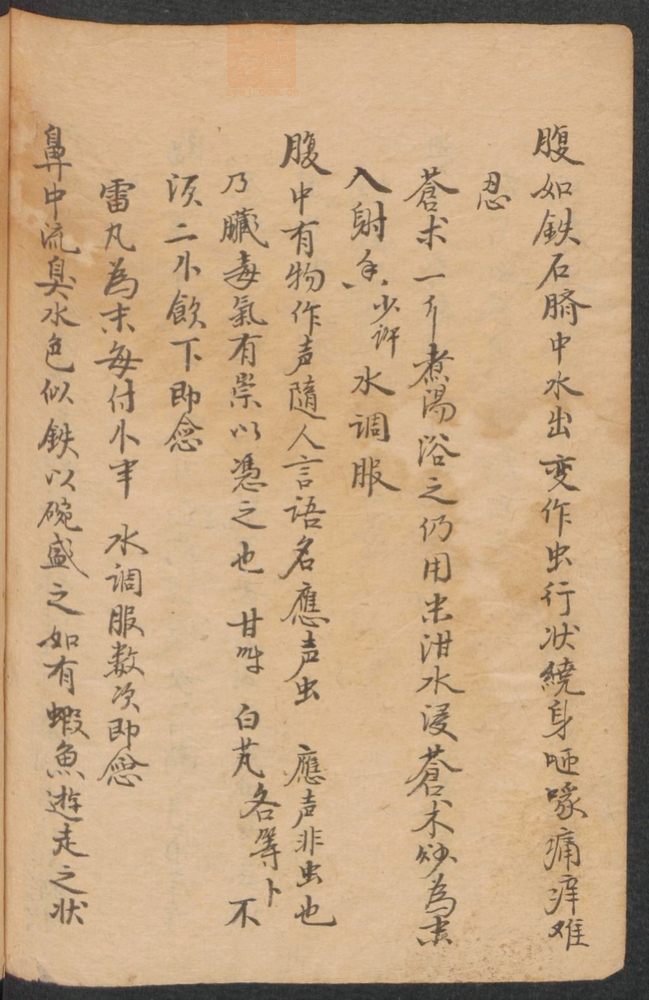 腹如鉄石臍中水出变作虫行状繞身咂啄痛痒难
忍
蒼术一斤煮湯浴之仍用米泔水浸蒼术炒為末
入射香少許水调服
腹中有物作声隨人言語名應声虫 應声非虫也
乃臓毒氣有祟以憑之也 甘草 白芃各等卜 不
湏二小飲下即愈
雷丸為末每付小半 水调服数次即愈
鼻中流臭水色似鉄以碗盛之如有蝦魚遊走之状